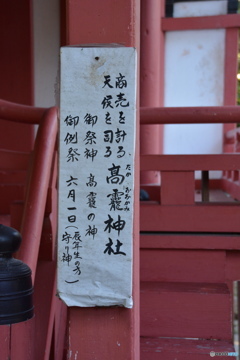 商売を計る
天侯を司る
高龗神社
たかおかみ
御祭神 高龗の神
御例祭 六月一日(辰年生の方守り神)